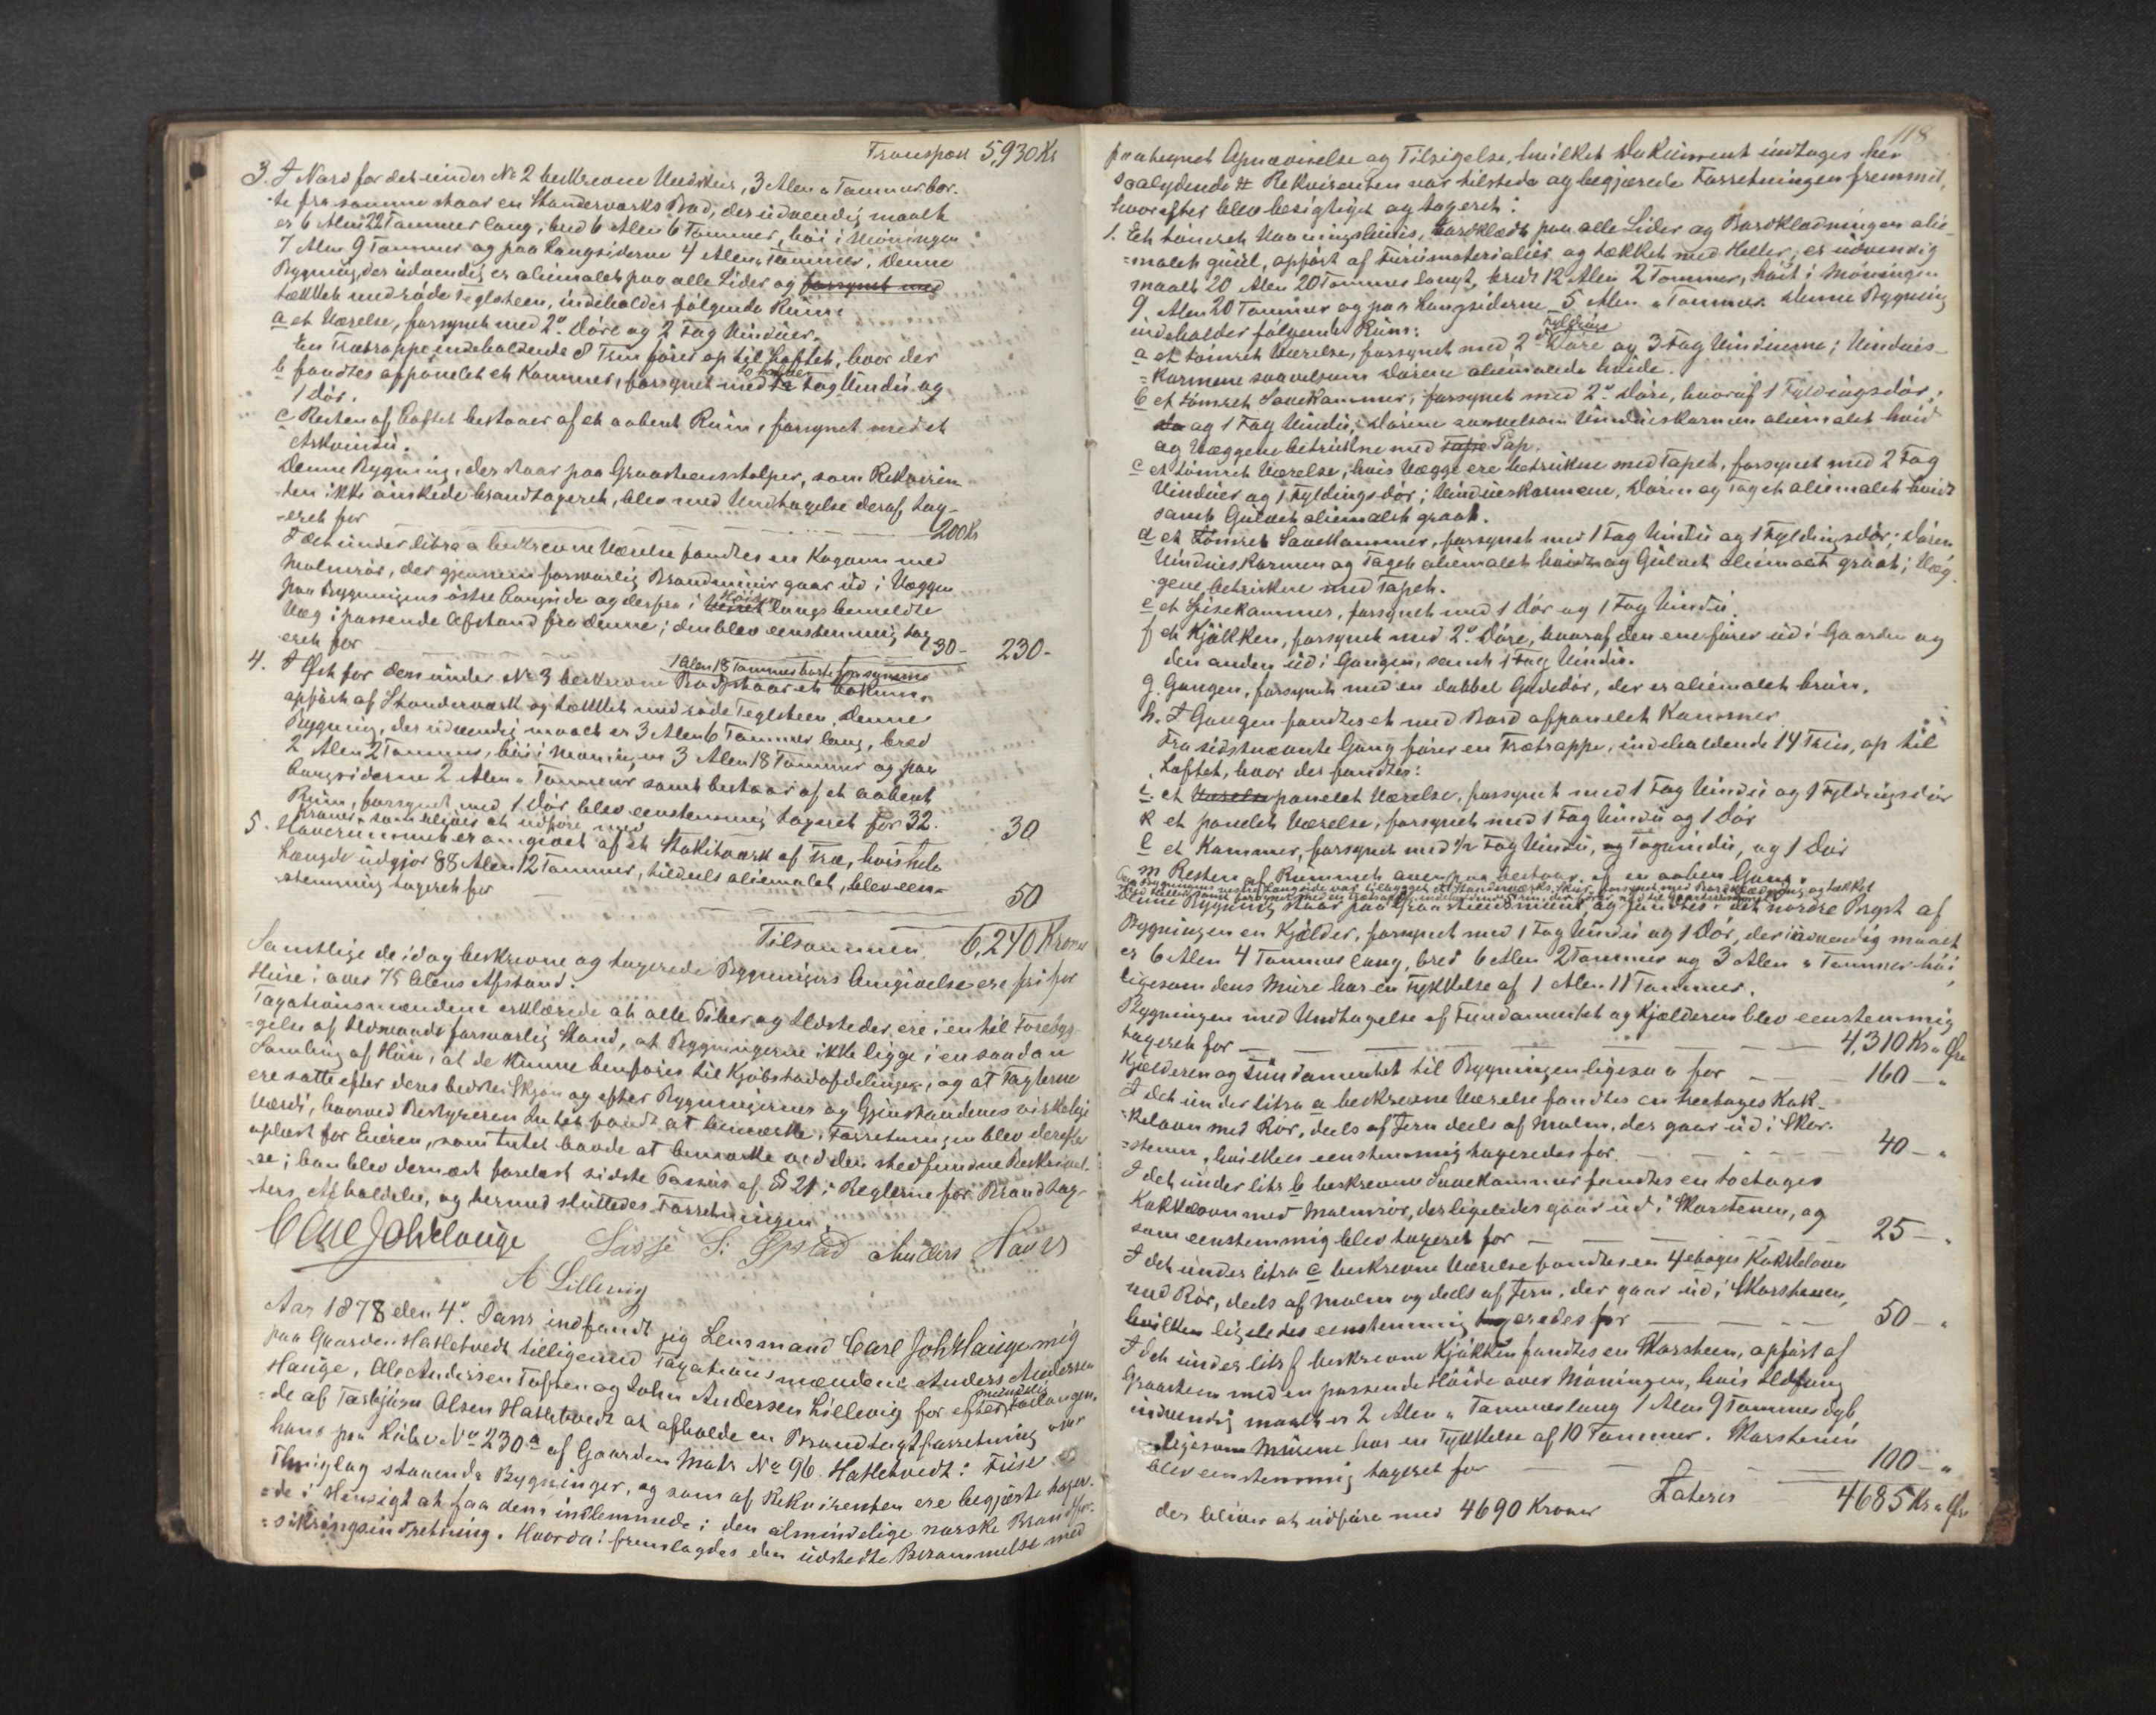 Transport 5,930 Kr
3. I Nord for det under No 2 beskrevne Udskur, 3 Alen " Tommer bor-
te fra samme staar en Standerværks Bod, der udvendig maalt
er 6 Alen 22 Tommer lang, bred 6 Alen 6 Tommer, høi i Møningen
7 Alen 9 Tommer og paa Langsiderne 4 Alen " Tommer. Denne
Bygning, der udvendig er oliemalet paa alle Sider og forsynet med
tækket med røde Teglsteen, indeholder følgende Rum:
a et Værelse, forsynet med 2de Døre og 2 Fag Vinduer.
En Trætrappe indeholdende 8 Trin fører op til Loftet, hvor der
b fandtes afpanelet et Kammer, forsynet med Fag Vindu og
1 Dør.
c Resten af Loftet bestaaer af et aabent Rum, forsynet med et
Arkvindu.
Denne Bygning, der staar paa Graasteensstolper, som Rekviren-
ten ikke ønskede brandtaxeret, blev med Undtagelse deraf tax-
eret for 200 Kr
I det under litra a beskrevne Værelse fandtes en Kogeovn med
Malmrør, der gjennem forsvarlig Brandmuur gaar ud i Væggen
paa Bygningens østre Langside og derfra i Høiden langs bemeldte
Væg i passende Afstand fra denne; den blev eenstemmig tax-
eret for 30 - 230 -
4. I Øst for den under No 3 beskrevne Bod, 1 Alen 18 Tommer borte fra samme staar et
opført af Standerværk og tækket med røde Teglsteen. Denne
Bygning, der udvendig maalt er 3 Alen 6 Tommer lang, bred
2 Alen 2 Tommer, høi i Møningen 3 Alen 18 Tommer og paa
Langsiderne 2 Alen " Tommer samt bestaar af et aabent
Rum, forsynet med 1 Dør blev eenstemmig taxeret for 32.
Kroner, som bliver at udføre med 30
5. Haverummet er omgivet af et Stakitværk af Træ, hvis hele
Længde udgjør 88 Alen 12 Tommer, tildeels oliemalet, blev een-
stemmig taxeret for 50
Tilsammen 6,240 Kroner
Samtlige de idag beskrevne og taxerede Bygningers Omgivelse ere fri for
Huse i over 75 Alens Afstand.
Taxationsmændene erklærede at alle Piber og Ildsteder, ere i en til Forebyg-
gelse af Ildsvaade forsvarlig Stand, at Bygningerne ikke ligge i en saadan
Samling af Huse, at de kunne henføres til Kjøbstadafdelingen, og at Taxterne
ere satte efter deres bedste Skjøn og efter Bygningernes og Gjenstandenes virkelige
Værdi, hvorved Bestyreren Intet fandt at bemærke. Forretningen blev derefter
oplæst for Eieren, som Intet havde at bemærke ved den stedfundne Beskrivel-
se; han blev dernæst forelæst sidste Passus af § 21 i Reglerne for Brandtax-
ters Afholdelse, og hermed sluttedes Forretningen.
Carl Joh Hauge Lasse S: Opstad Anders Haves
A Lillevig
Aar 1878 den 4de Janr indfandt jeg Lensmand Carl Joh Hauge mig
paa Gaarden Hatletvedt tilligemed Taxationsmændene Anders Andersen
Hauge, Ole Andersen Toften og John Andersen Lillevig for efter mundtlig Forlangen-
de af Torbjørn Olsen Hatletvedt at afholde en Brandtaxtforretning over
hans paa Løbe No 230a af Gaarden Matr No 96 Hatletvedt i Fuse
Thinglag staaende Bygninger, og som af Rekvirenten ere begjærte taxer-
de i Hensigt at faa dem indlemmede i den almindelige norske Brandfor-
sikringsindretning. Hvorda: fremlagdes den udstedte Berammelse med
118
paategnet Opnævnelse og Tilsigelse, hvilket Dokument indtages her
saalydende # Rekvirenten var tilstede og begjærede Forretningen fremmet,
hvorefter blev besigtiget og taxeret:
1. Et tømret Vaaningshuus, bordklædt paa alle Sider og Bordklædningen olie-
malet guul, opført af Furumaterialier og tækket med Heller, er udvendig
maalt 20 Alen 20 Tommer langt, bredt 12 Alen 2 Tommer, høit i Møningen
9 Alen 20 Tommer og paa Langsiderne 5 Alen " Tommer. Denne Bygning
indeholder følgende Rum:
a et tømret Værelse, forsynet med 2de Fyldings Døre og 3 Fag Vinduerne; Vindues-
karmene saavelsom Dørene oliemalede hvide.
b et tømret Sovekammer, forsynet med 2de Døre, hvoraf 1 Fyldingsdør,
og 1 Fag Vindu; Dørene saavelsom Vindueskarmen oliemalet hvid
og Væggene betrukne med Tapet Tap.
c et tømret Værelse, hvis Vægge ere betrukne med Tapet, forsynet med 2 Fag
Vinduer og 1 Fyldingsdør; Vindueskarmene, Døren og Taget oliemalet hvidt
samt Gulvet oliemalet graat.
d et tømret Sovekammer, forsynet med 1 Fag Vindu og 1 Fyldingsdør; Døren
Vindueskarmen og Taget oliemalet hvidt og Gulvet oliemalt graat; Væg-
gene betrukne med Tapet.
e et Spisekammer, forsynet med 1 Dør og 1 Fag Vindu.
f et Kjøkken, forsynet med 2de Døre, hvoraf den ene fører ud i Gaarden og
den anden ud i Gangen, samt 1 Fag Vindu.
g. Gangen, forsynet med en dobbel Gadedør, der er oliemalet brun.
h. I Gangen fandtes et med Bord afpanelet Kammer
Fra sidstnævnte Gang fører en Trætrappe, indeholdende 14 Trin, op til
Loftet, hvor der fandtes:
i et Værelse panelet Værelse, forsynet med 1 Fag Vindu og 1 Fyldningsdør
k et panelet Værelse, forsynet med 1 Fag Vindu og 1 Dør
l et Kammer, forsynet med 1/2 Fag Vindu, og Tagvindu, og 1 Dør
m Resten af Rummet ovenpaa bestaar af en aaben Gang.
Bygningens Langside var tilbygget et Standerværks Skur, forsynet med Bordklædning og tækket
Denne Bygning staar paa Graasteensmuur, og fandtes i det nordre Bryst af
Bygningen en Kjælder, forsynet med 1 Fag Vindu og 1 Dør, der indvendig maalt
er 6 Alen 4 Tommer lang, bred 6 Alen 2 Tommer og 3 Alen " Tommer høi,
ligesom dens Mure har en Tykkelse af 1 Alen 11 Tommer.
Bygningen med Undtagelse af Fundamentet og Kjælderen blev eenstemmig
taxeret for 4,310 Kr " Øre
Kjælderen og Fundamentet til Bygningen ligesaa for 160 - "
I det under litra a beskrevne Værelse fandtes en treetages Kak-
kelovn med Rør, deels af Jern deels af Malm, der gaar ud i Skor-
stenen, hvilken eenstemmig taxeredes for 40 - "
I det under litr b beskrevne Sovekammer fandtes en toetages
Kakkelovn med Malmrør, der ligeledes gaar ud i Skorstenen, og
som eenstemmig blev taxeret for 25 - "
I det under litra c beskrevne Værelse fandtes en 4 etages Kakkelovn
med Rør, deels af Malm og deels af Jern, der gaar ud i Skorstenen,
hvilken ligeledes eenstemmig taxeredes for 50 - "
I det under litr f beskrevne Kjøkken fandtes en Skorsteen, opført af
Graasteen med en passende Høide over Møningen, hvis Ildfang
indvendig maalt er 2 Alen " Tommer lang 1 Alen 9 Tommer dyb,
ligesom Murene har en Tykkelse af 10 Tommer. Skorstenen
blev eenstemmig taxeret for 100 - "
Lateris 4685 Kr " Øre
der bliver at udføre med 4690 Kroner